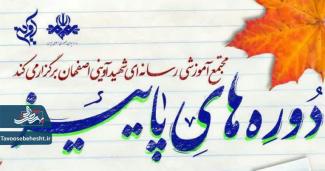 مجتمع آموزشی رسانه‌ای شهید آوینی اصفهان برگزار می کند
دوره های پاییز
Tavoosebehesht.ir